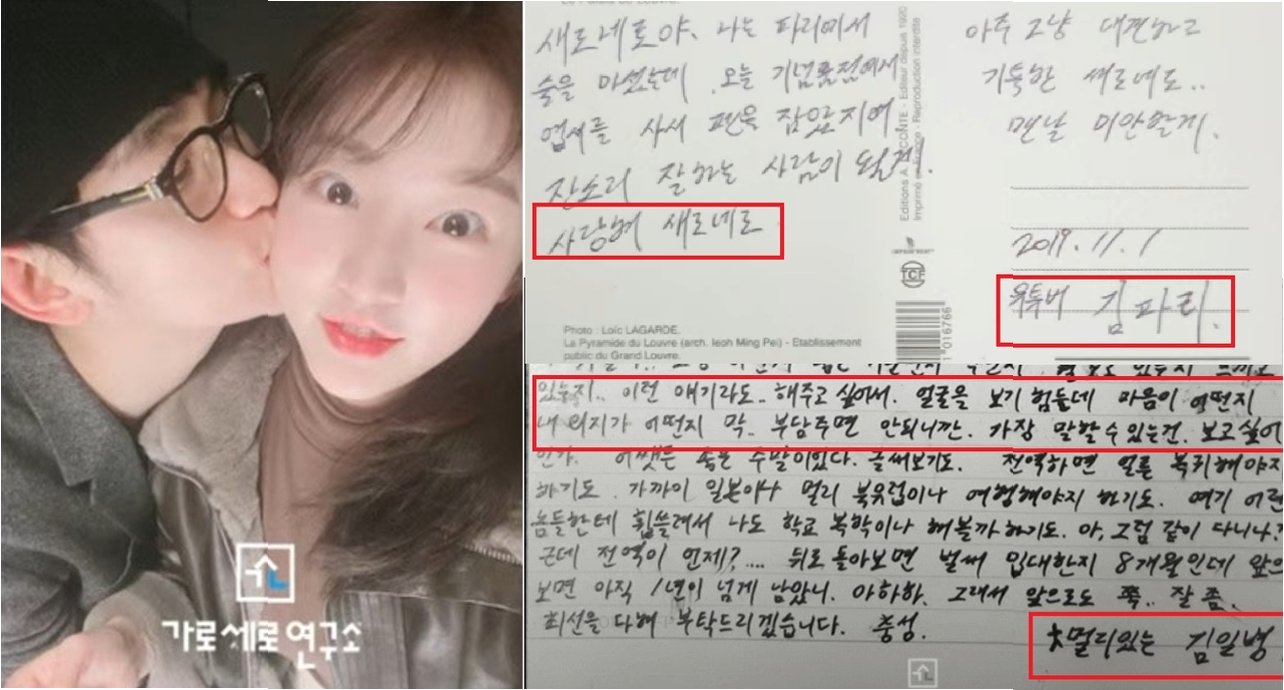 가로세로연구소
새로네로야. 나는 파리에서
술을 마셨는데. 오늘 기념품점에서
엽서를 사서 펜을 잡았지여
잔소리 잘하는 사람이 될게!
사랑해 새로네로
Photo : Loïc LAGARDE.
La Pyramide du Louvre (arch. Ieoh Ming Pei) - Etablissement
public du Grand Louvre.
Editions A. LECONTE - Editeur depuis 1920
Imprimé en France - Reproduction interdite
TCF
1 016766
아주 그냥 대견하고
기특한 새로네로..
맨날 미안할게.
2019. 11. 1
유투버 김파리.
있는지.. 이런 얘기라도.. 해주고 싶어서. 얼굴을 보기 힘들데 마음이 어떤지
내 의지가 어떤지 막. 부담주면 안되니깐. 가장 말할 수 있는건. 보고싶어
인가. 어쨋든 좋은 수발이있다. 글써보기도. 전역하면 얼른 복귀해야지
하기도. 가까이 일본이나 멀리 북유럽이나 여행해야지 하기도. 여기 어린
놈들한테 휩쓸려서 나도 학교 복학이나 해볼까 하기도. 아, 그럼 같이 다니나?
근데 전역이 언제?.... 뒤로 돌아보면 벌써 입대한지 8개월인데 앞으
보면 아직 1년이 넘게 남았니. 아하하. 그래서 앞으로도 쭉.. 잘 좀.
최선을 다해 부탁드리겠습니다. 충성.
멀리있는 김일병